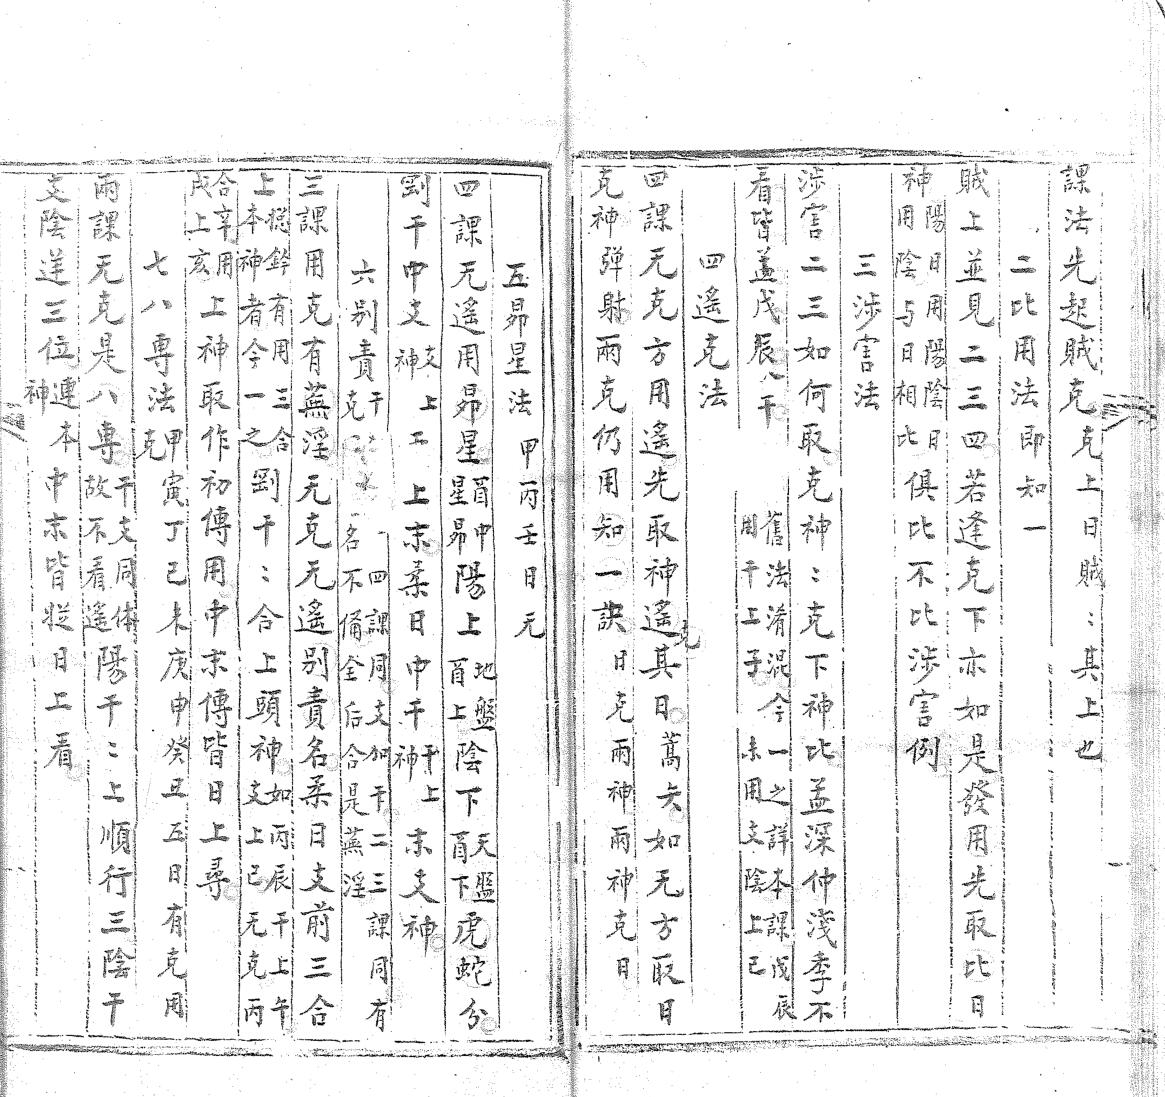 課法先起賊克克上日賊〻其上也
二比用法即知一
賊上並見二三四若逢克下亦如是發用先取比日
神陽日用陽陰日用陰与日相比俱比不比涉害例
三涉害法
涉害二三如何取克神〻克下神比孟深仲淺季不
看皆孟戊辰八干舊法淆混今一之詳本課戊辰用干上子未用支陰上巳
四遙克法
四課无克方用遙先取神遙克其日蒿矢如无方取日
克神彈射兩克仍用知一訣日克兩神兩神克日
五昴星法甲丙壬日无
四課无遙用昴星酉中星昴陽上地盤酉上陰下天盤酉下虎蛇分
剛干中支支神上上末柔日中干干上神末支神
六別責干克四課同支加干二三課同有名不俻全后合是蕪淫
三課用克有蕪淫无克无遙別責名柔日支前三合
上本神者今一之剛干〻合上頭神如丙辰干上午支上巳无克丙
合辛用戌上亥上神取作初傳用中末傳皆日上尋
七八專法甲寅丁己未庚申癸丑五日有克用克
兩課无克是八專干支同体故不看遙陽干〻上順行三陰干
支陰逆三位連本神中末皆從日上看